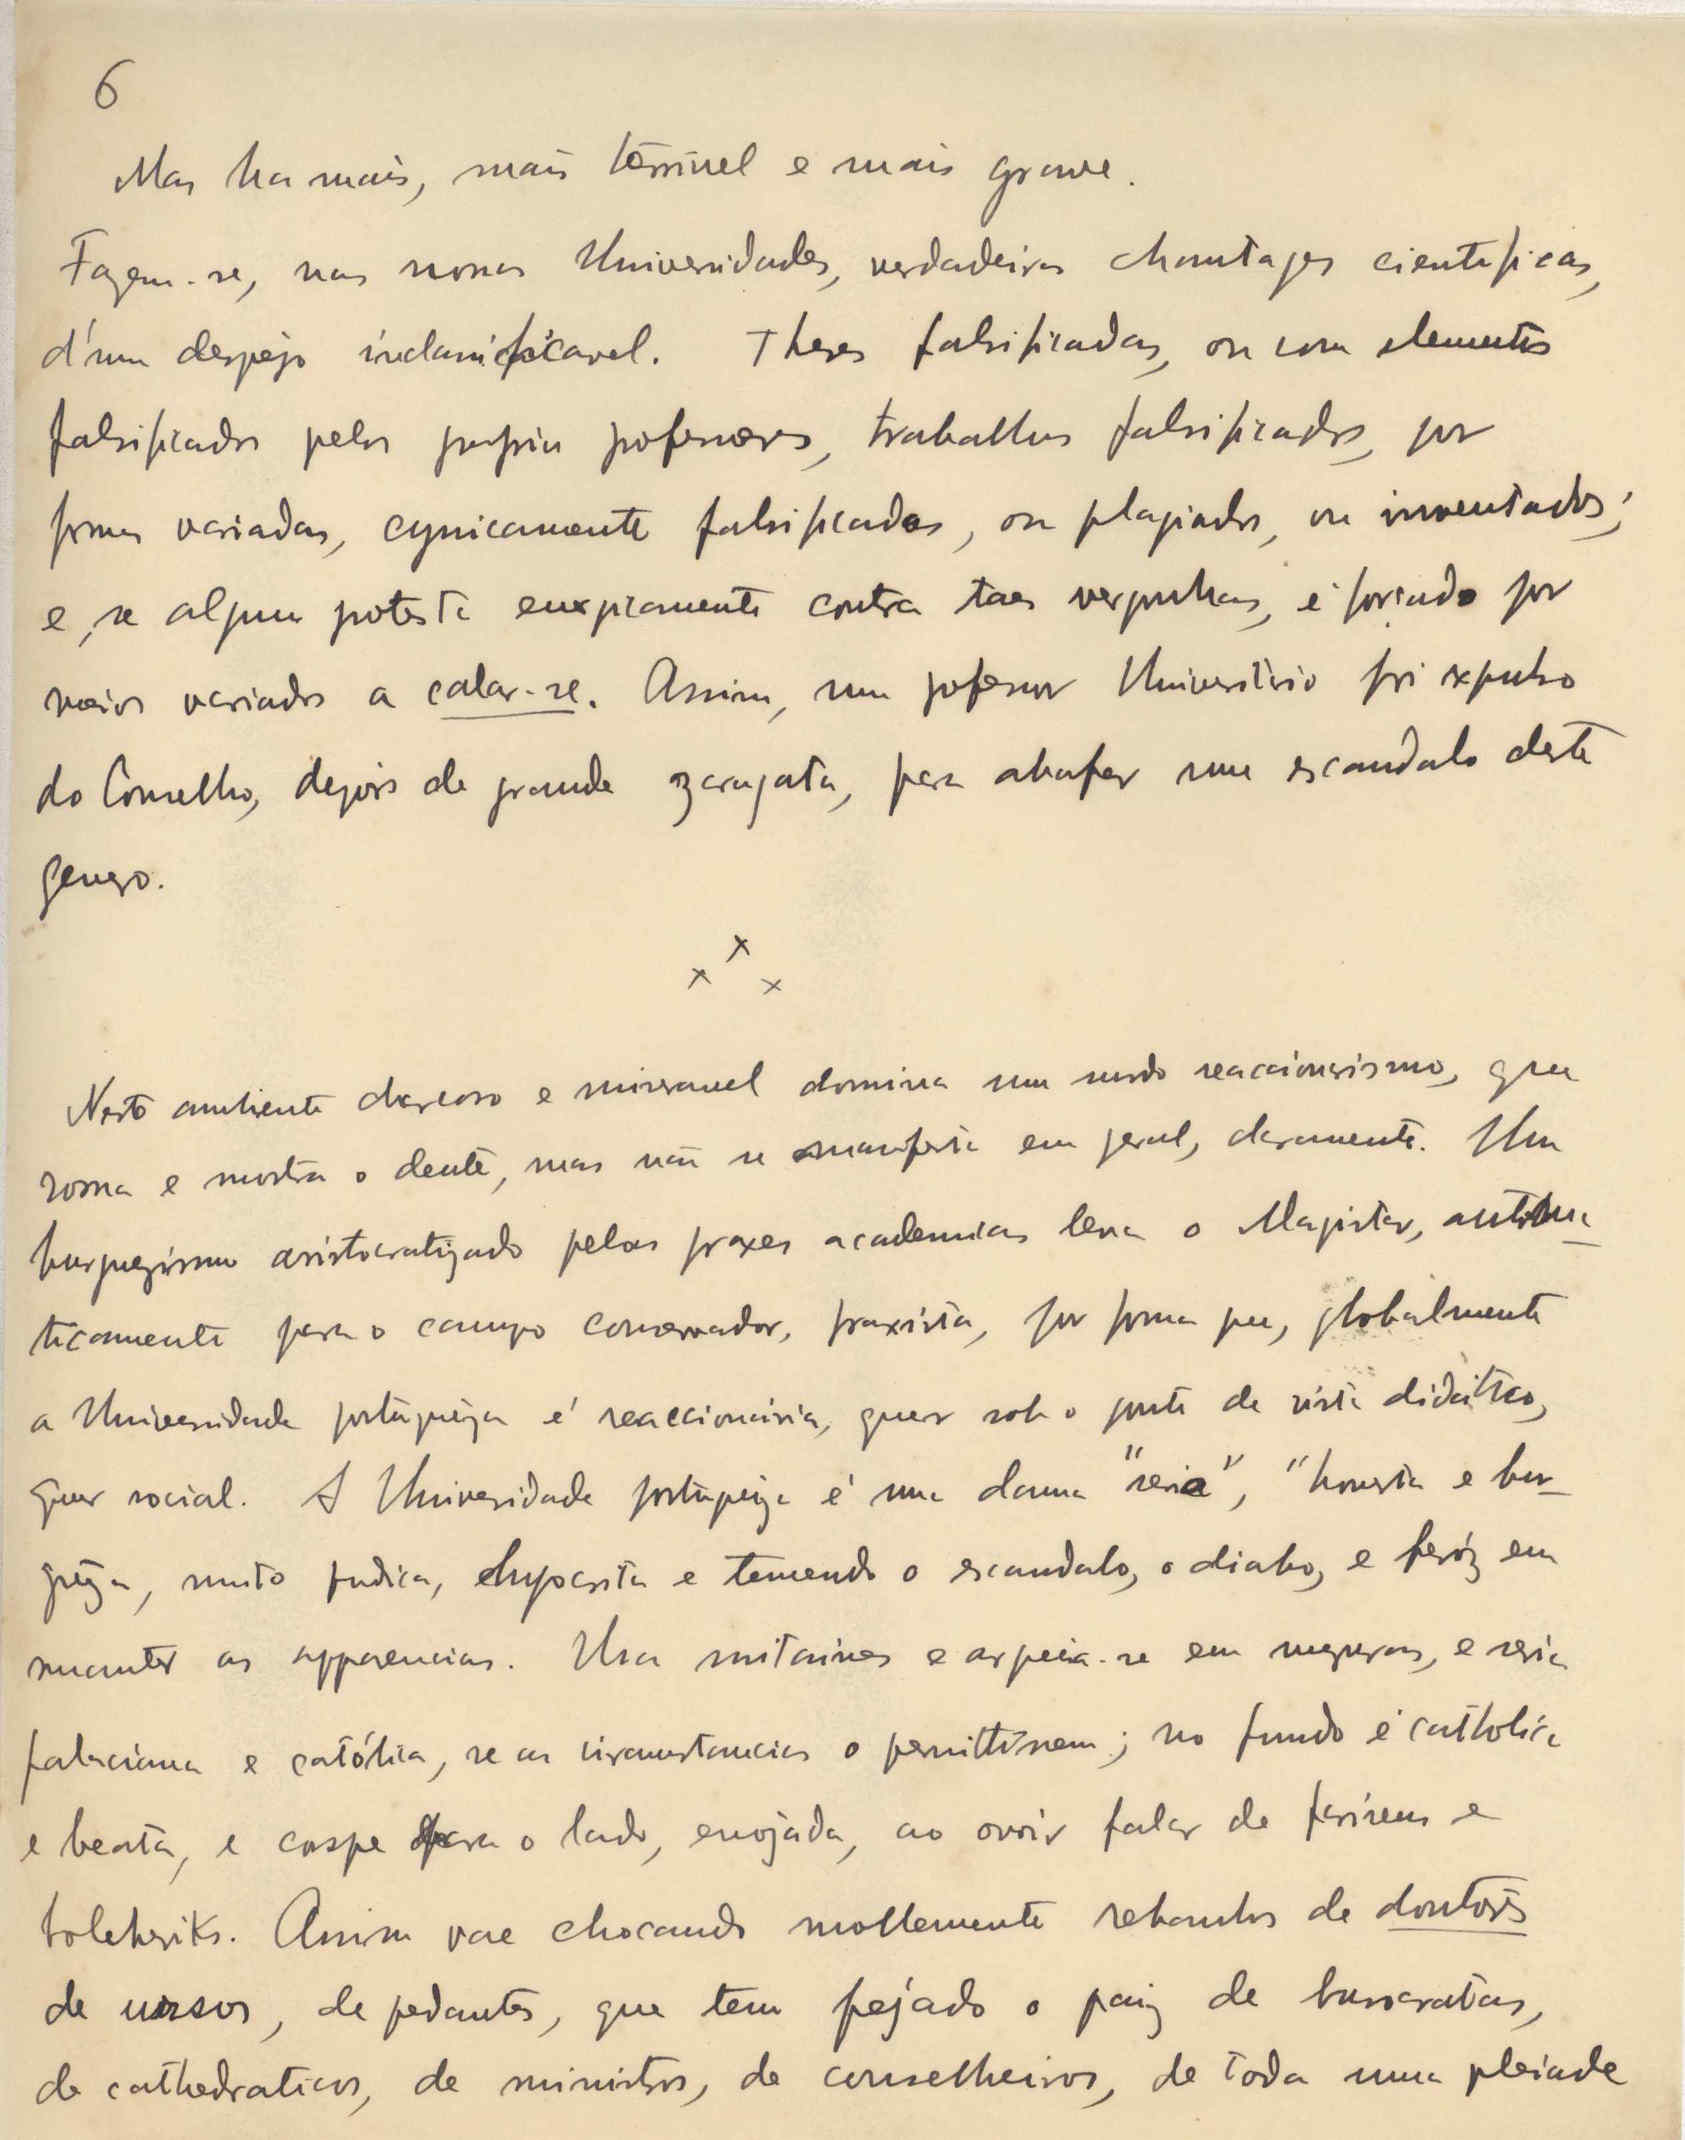 6
Mas ha mais, mais terrivel e mais grave.
Fazem-se, nas nossas Universidades, verdadeiras chantages cientificas,
d'um despejo inclassificavel. Theses falsificadas, ou com elementos
falsificados pelos proprios professores, trabalhos falsificados, por
formas variadas, cynicamente falsificados, ou plagiados, ou inventados;
e, se algum protesta energicamente contra taes vergonhas, é forçado por
meios variados a calar-se. Assim, um professor Universitário foi expulso
do Conselho, depois de grande zaragata, para abafar um escandalo deste
genero.
x x x
Neste ambiente charcoso e miseravel domina um surdo reaccionarismo, que
rosna e mostra o dente, mas não se manifesta em geral, claramente. Um
burguezismo aristocratizado pelas praxes academicas leva o Magister, automa-
ticamente para o campo conservador, praxista, por forma que, globalmente
a Universidade portugueza é reaccionária, quer sob o ponto de vista didático,
quer social. A Universidade portugueza é uma dama "seria", "honesta e bur-
gueza, muito pudica, hypocrita e temendo o escandalo, o diabo, e feróz em
manter as apparencias. Usa mitaines e arpeia-se em negregas, e seria
palaciana e católica, se as circunstancias o permittissem; no fundo é catholica
e beata, e cospe para o lado, enojada, ao ouvir falar de farineus e
bolcheviks. Assim vae chocando mollemente rebanhos de doutores
de ursos, de pedantes, que tem pejado o paiz de burocratas,
de cathedraticos, de ministros, de conselheiros, de toda uma pleiade